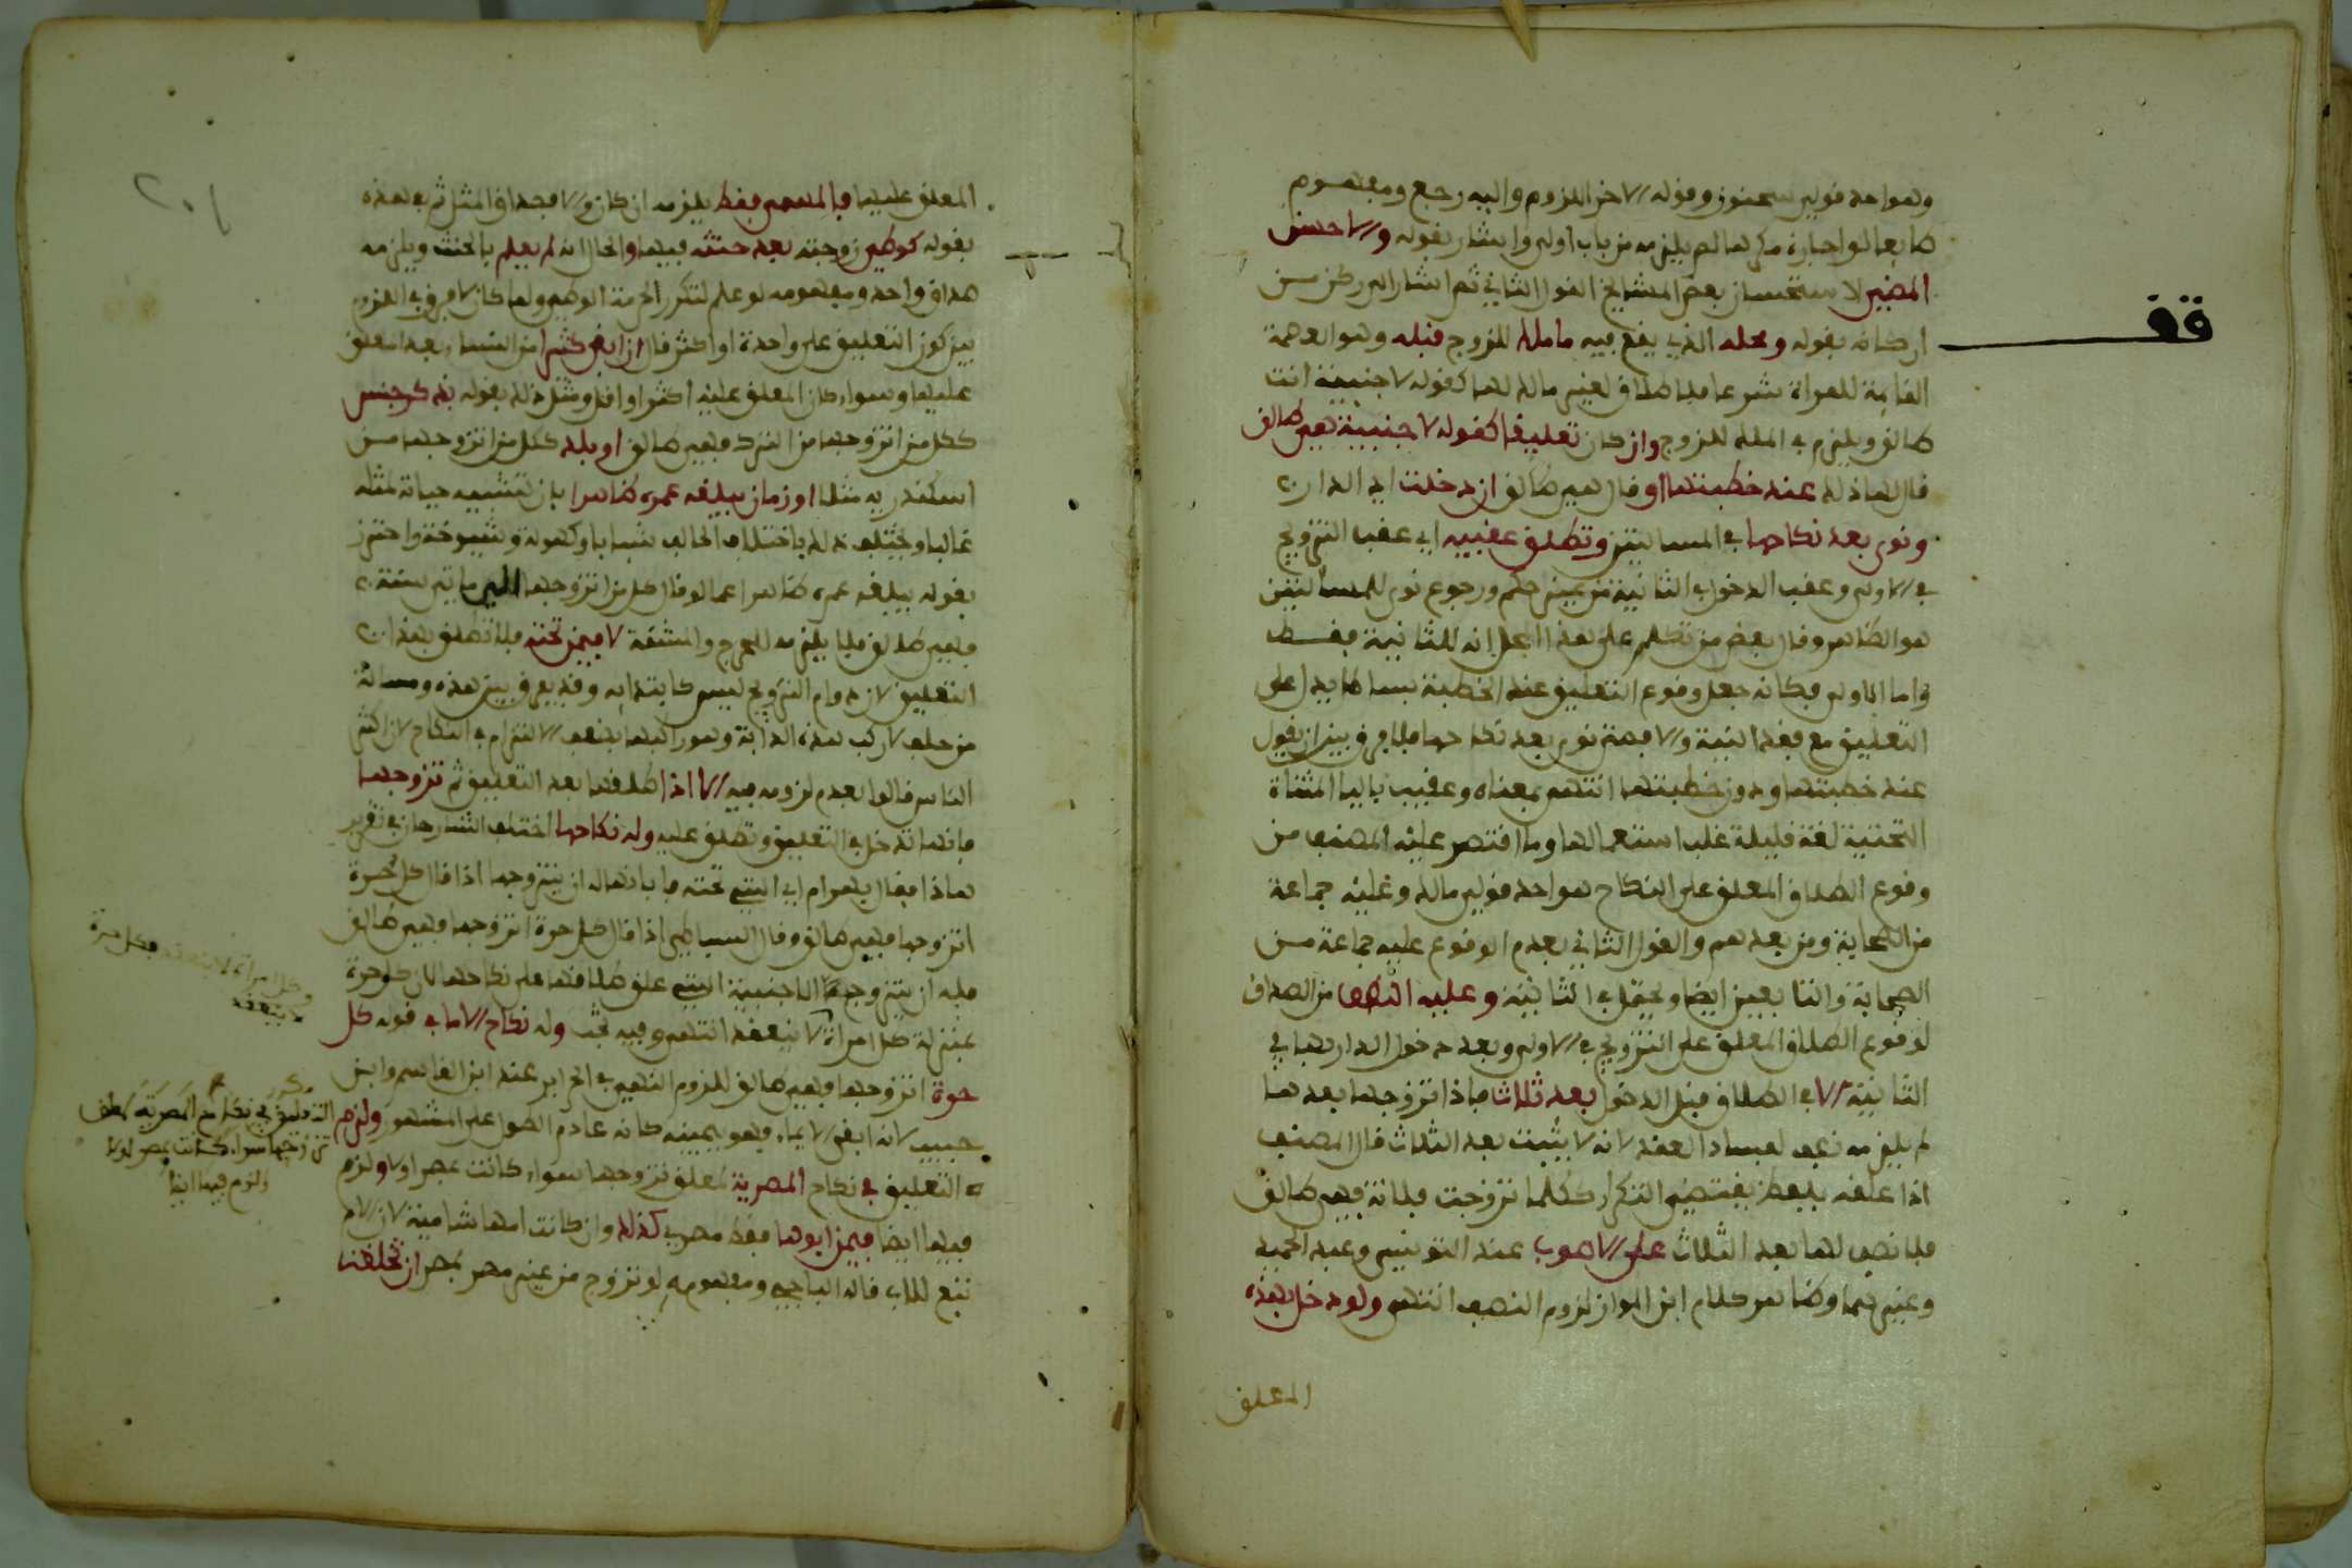 وهو احد قولي سحنون وقوله الاخر اللزوم واليه رجع ومفهوم
طايعا لو اجباره مكرها لم يلزمه من باب اولى واشار بقوله والاحسن
المضي لاستحسان بعض المشايخ القول الثاني ثم اشار الى ركن من
اركانه بقوله ومحله الذي يقع فيه ما ملك للزوج قبله وهو العصمة
قف
القايمة للمراة شرعا فلا طلاق لغير مالك لها كقوله لاجنبية انت
طالق ويلزم في الملك للزوج وان كان تعليقا كقوله لاجنبية هي طالق
قال لها ذلك عند خطبتها او قال هي طالق ان دخلت اي الدار
ونوى بعد نكاحها في المسالتين وتطلق عقيبه اي عقب التزويج
في الاولى وعقب الدخول في الثانية من غير حكم ورجوع نوى للمسالتين
هو الظاهر وقال بعض من تكلم على هذا المحل انه للثانية فقط
واما الاولى فكانه جعل وقوع التعليق عند الخطبة بساطا يدل على
التعليق مع فقد النية والا فمتى نوى بعد نكاحها فلا فرق بين ان يقول
عند خطبتها ودون خطبتها انتهى بمعناه وعقيب باليا المثناة
التحتية لغة قليلة غلب استعمالها وما اقتصر عليه المصنف من
وقوع الطلاق المعلق على النكاح هو احد قولي مالك وعليه جماعة
من الصحابة ومن بعدهم والقول الثاني بعدم الوقوع عليه جماعة من
الصحابة والتابعين ايضا ويحتمل في الثانية وعليه النصف من الصداق
لوقوع الطلاق المعلق على التزويج في الاولى وبعد دخول الدار بها في
الثانية الا في الطلاق قبل الدخول بعد ثلاث فاذا تزوجها بعدها
لم يلزمه نصف لفساد العقد لانه لا يثبت بعد الثلاث قال المصنف
اذا علقه بلفظ يقتضي التكرار ككلما تزوجت فلانة فهي طالق
فلا نصف لها بعد الثلاث على الاصوب عند التونسي وعبد الحميد
وغيرهما وظاهر كلام ابن المواز لزوم النصف انتهى ولو دخل بهذه
المعلق
المعلق عليها فالمسمى فقط يلزمه ان كان والا فصداق المثل ثم هذه
بقوله كواطئ زوجته بعد حنثه فيها والحال انه لم يعلم بالحنث ويلزمه
صداق واحد ومفهومه لو علم لتكرر الحرمة الوطء ولما كان لا فرق في اللزوم
بين كون التعليق على واحدة او اكثر قال ان ابقى كثيرا من النساء بعد المعلق
عليها وسواء كان المعلق عليه اكثر او اقل ومثل ذلك بقوله بذكر جنس
ككل من اتزوجها من الترك فهي طالق او بلد ككل من اتزوجها من
اسكندرية مثلا او زمان يبلغه عمره ظاهرا بان تشبه حياته لمثله
غالبا ويختلف ذلك باختلاف الحالف شبابا وكهولة وشيوخة واحترز
بقوله يبلغه عمره ظاهرا عما لو قال كل من اتزوجها الى مايتي سنة
فهي طالق فلا يلزمه للحرج والمشقة لا فيمن تحته فلا تطلق بهذا
التعليق لان دوام التزويج ليس كابتدايه وقد يفرق بين هذه ومسالة
من حلف لا ركب هذه الدابة وهو راكبها بضعف الالتزام في النكاح لان اكثر
الناس قالوا بعدم لزومه فيه الا اذا طلقها بعد التعليق ثم تزوجها
فانها تدخل في التعليق وتطلق عليه وله نكاحها اختلف الشارحان في تقرير
هاذا فقال بهرام اي التي تحته فابانها له ان يتزوجها اذا قال كل حرة
اتزوجها فهي طالق وقال البساطي اذا قال كل حرة اتزوجها فهي طالق
فله ان يتزوج الاجنبية التي علق طلاقها على نكاحها لان كل حرة
بمنزلة كل امراة لا ينعقد انتهى وفيه بحث وله نكاح الاما في قوله كل
حرة اتزوجها فهي طالق للزوم اليمين في الحراير عند ابن القاسم وابن
حبيب لانه ابقى الاماء فهو بيمينه كانه عادم الطول على المشهور ولزم
التعليق في نكاح المصرية لمعلق تزوجها سواء كانت بمصر او لا ولزم
فيها ايضا فيمن ابوها فقط مصري كذلك وان كانت امها شامية لان الام
تبع للاب قاله الباجي ومفهومه لو تزوج من غير مصر بمصر ان تخلقت
وكل امراة لا ينعقد فكل حرة
لا ينعقد
مكرر
التعليق في نكاح المصرية لمعلق
تزوجها سواء كانت بمصر او لا
ولزم فيها ايضا